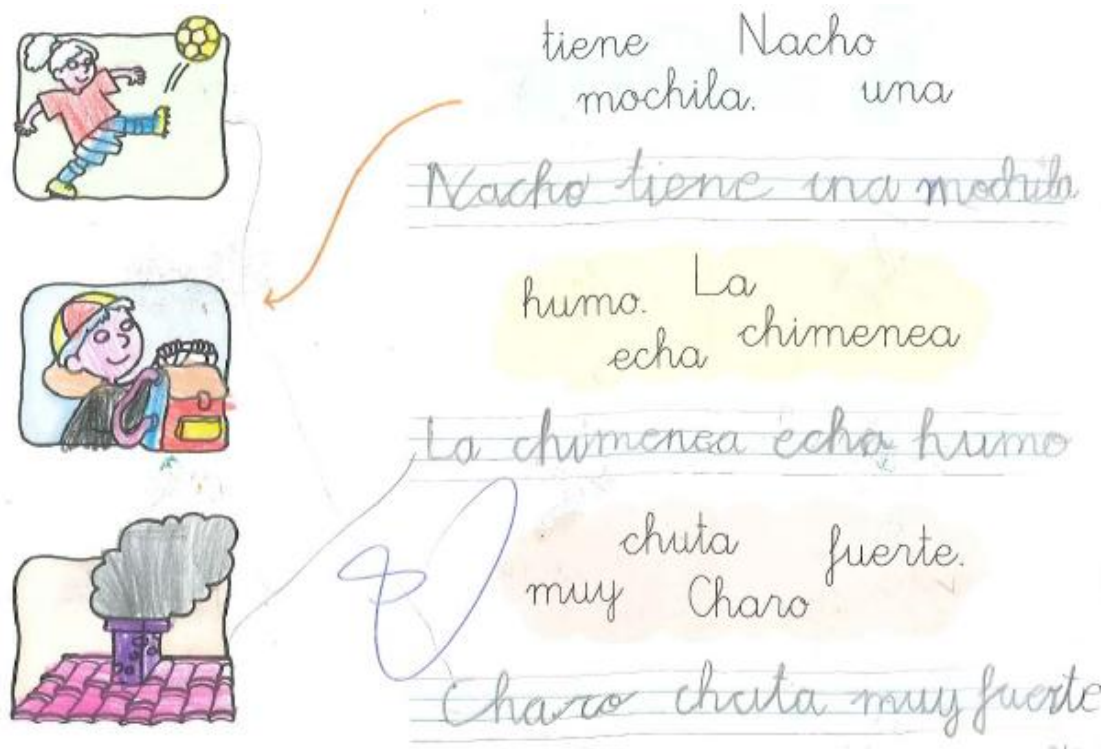 tiene Nacho
mochila. una
Nacho tiene una mochila
humo. La
echa chimenea
La chimenea echa humo
chuta fuerte.
muy Charo
Charo chuta muy fuerte